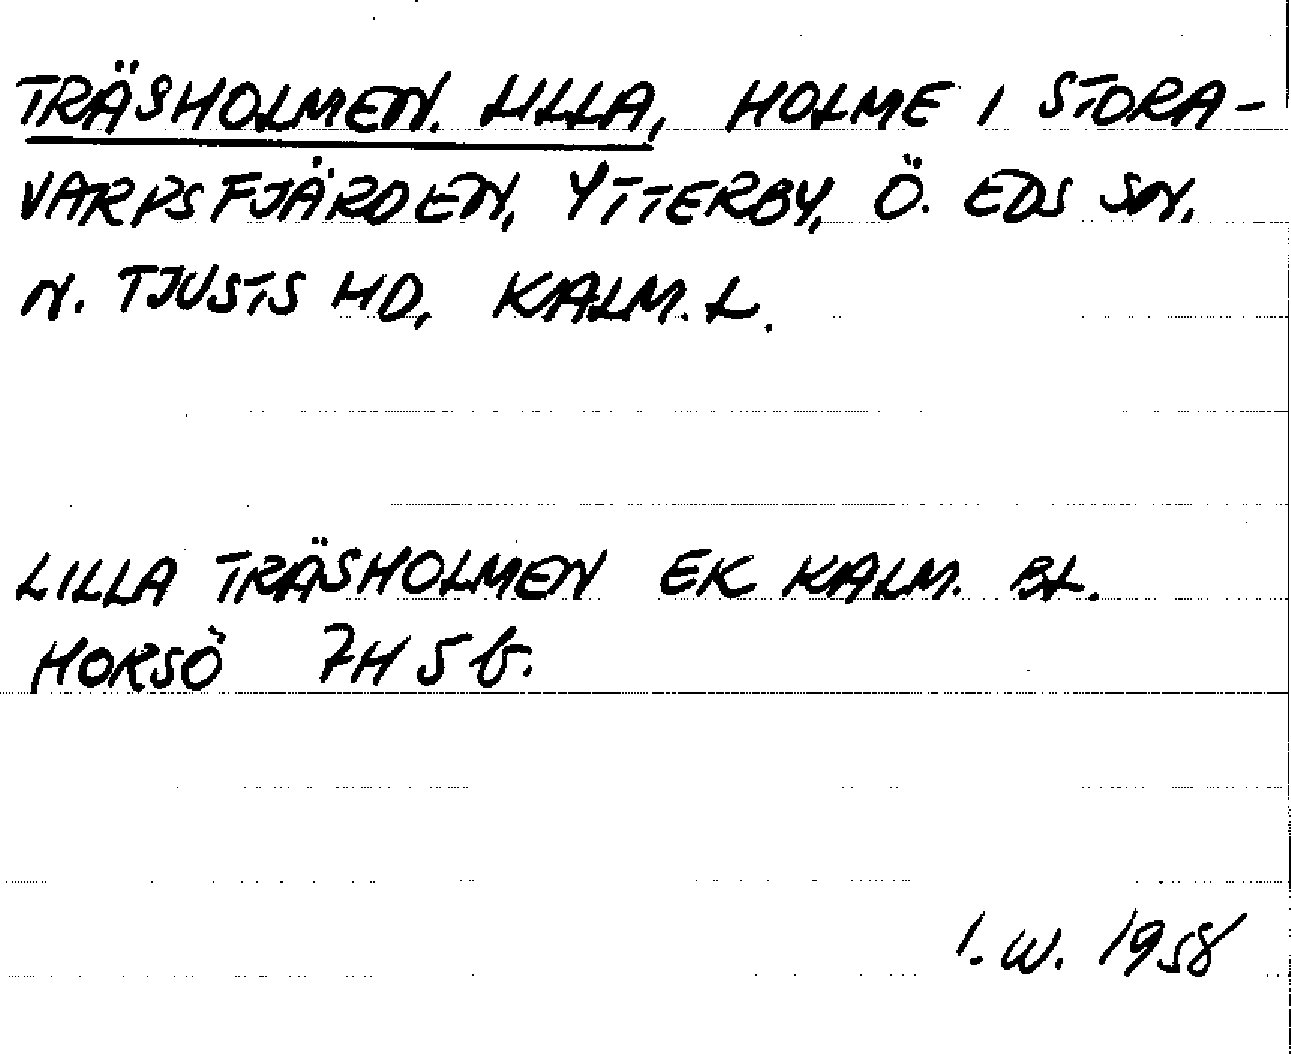 TRÄSHOLMEN. LILLA, HOLME I STORA-
VARPSFJÄRDEN, YTTERBY, Ö. EDS SN.
N. TJUSTS HD, KALM. L.
LILLA TRÄSHOLMEN EK KALM. BL.
HORSÖ 7H 5b.
I. W. 1958